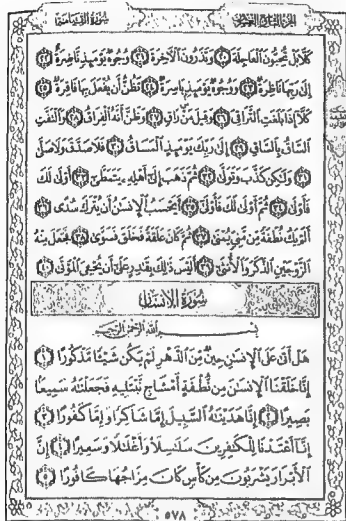 الجزء التاسع والعشرون سورة القيامة
كَلَّا بَلْ تُحِبُّونَ ٱلْعَاجِلَةَ ۝٢٠ وَتَذَرُونَ ٱلْآخِرَةَ ۝٢١ وُجُوهٌ يَوْمَئِذٍ نَّاضِرَةٌ ۝٢٢
إِلَىٰ رَبِّهَا نَاظِرَةٌ ۝٢٣ وَوُجُوهٌ يَوْمَئِذٍ بَاسِرَةٌ ۝٢٤ تَظُنُّ أَن يُفْعَلَ بِهَا فَاقِرَةٌ ۝٢٥
كَلَّا إِذَا بَلَغَتِ ٱلتَّرَاقِيَ ۝٢٦ وَقِيلَ مَنْ رَاقٍ ۝٢٧ وَظَنَّ أَنَّهُ ٱلْفِرَاقُ ۝٢٨ وَٱلْتَفَّتِ
ٱلسَّاقُ بِٱلسَّاقِ ۝٢٩ إِلَىٰ رَبِّكَ يَوْمَئِذٍ ٱلْمَسَاقُ ۝٣٠ فَلَا صَدَّقَ وَلَا صَلَّىٰ
۝٣١ وَلَٰكِن كَذَّبَ وَتَوَلَّىٰ ۝٣٢ ثُمَّ ذَهَبَ إِلَىٰ أَهْلِهِۦ يَتَمَطَّىٰٓ ۝٣٣ أَوْلَىٰ لَكَ
فَأَوْلَىٰ ۝٣٤ ثُمَّ أَوْلَىٰ لَكَ فَأَوْلَىٰٓ ۝٣٥ أَيَحْسَبُ ٱلْإِنسَٰنُ أَن يُتْرَكَ سُدًى ۝٣٦
أَلَمْ يَكُ نُطْفَةً مِّن مَّنِىٍّ يُمْنَىٰ ۝٣٧ ثُمَّ كَانَ عَلَقَةً فَخَلَقَ فَسَوَّىٰ ۝٣٨ فَجَعَلَ مِنْهُ
ٱلزَّوْجَيْنِ ٱلذَّكَرَ وَٱلْأُنثَىٰٓ ۝٣٩ أَلَيْسَ ذَٰلِكَ بِقَٰدِرٍ عَلَىٰٓ أَن يُحْـِۧىَ ٱلْمَوْتَىٰ ۝٤٠
سورة الإنسان
بِسْمِ ٱللَّهِ ٱلرَّحْمَٰنِ ٱلرَّحِيمِ
هَلْ أَتَىٰ عَلَى ٱلْإِنسَٰنِ حِينٌ مِّنَ ٱلدَّهْرِ لَمْ يَكُن شَيْـًٔا مَّذْكُورًا ۝١
إِنَّا خَلَقْنَا ٱلْإِنسَٰنَ مِن نُّطْفَةٍ أَمْشَاجٍ نَّبْتَلِيهِ فَجَعَلْنَٰهُ سَمِيعًۢا
بَصِيرًا ۝٢ إِنَّا هَدَيْنَٰهُ ٱلسَّبِيلَ إِمَّا شَاكِرًا وَإِمَّا كَفُورًا ۝٣
إِنَّآ أَعْتَدْنَا لِلْكَٰفِرِينَ سَلَٰسِلَا۟ وَأَغْلَٰلًا وَسَعِيرًا ۝٤ إِنَّ
ٱلْأَبْرَارَ يَشْرَبُونَ مِن كَأْسٍ كَانَ مِزَاجُهَا كَافُورًا ۝٥
٥٧٨